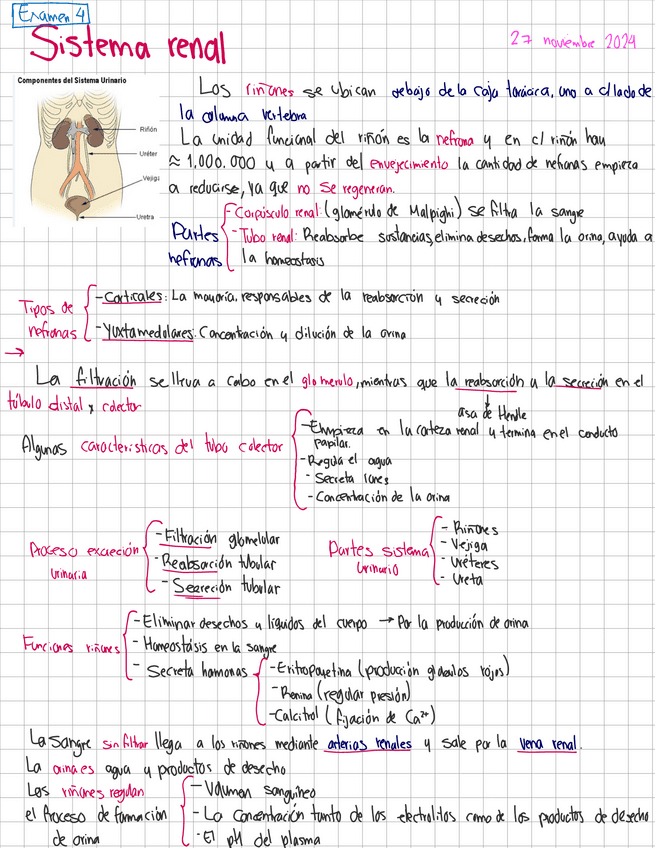 Examen 4
Sistema renal
27 noviembre 2024
Componentes del Sistema Urinario
Riñón
Uréter
Vejiga
Uretra
Los riñones se ubican debajo de la caja torácica, uno a c/lado de
la columna vertebra
La unidad funcional del riñón es la nefrona y en c/ riñón hay
≈ 1,000.000 y a partir del envejecimiento la cantidad de nefronas empieza
a reducirse, ya que no se regeneran.
Partes nefronas
- Corpúsculo renal: (glomérulo de Malpighi) se filtra la sangre
- Tubo renal: Reabsorbe sustancias, elimina desechos, forma la orina, ayuda a
la homeostasis
Tipos de nefronas
- Corticales: La mayoría, responsables de la reabsorción y secreción
- Yuxtamedulares: Concentración y dilución de la orina
→
La filtración se lleva a cabo en el glomerulo, mientras que la reabsorción y la secreción en el
túbulo distal y colector
asa de Henle
Algunas características del tubo colector
- Empieza en la corteza renal y termina en el conducto
papilar.
- Regula el agua
- Secreta iones
- Concentración de la orina
Proceso excreción
urinaria
- Filtración glomelular
- Reabsorción tubular
- Secreción tubular
Partes sistema
urinario
- Riñones
- Vejiga
- Uréteres
- Ureta
Funciones riñones
- Eliminar desechos y liquidos del cuerpo → Por la producción de orina
- Homeostásis en la sangre
- Secreta hormonas
- Eritropoyetina (producción glóbulos rojos)
- Renina (regular presión)
- Calcitrol (fijación de Ca²⁺)
La sangre sin filtrar llega a los riñones mediante arterias renales y sale por la vena renal.
La orina es agua y productos de desecho
Los riñones regulan
el proceso de formación
de orina
- Volumen sanguíneo
- La Concentración tanto de los electrolitos como de los productos de desecho
- El pH del plasma